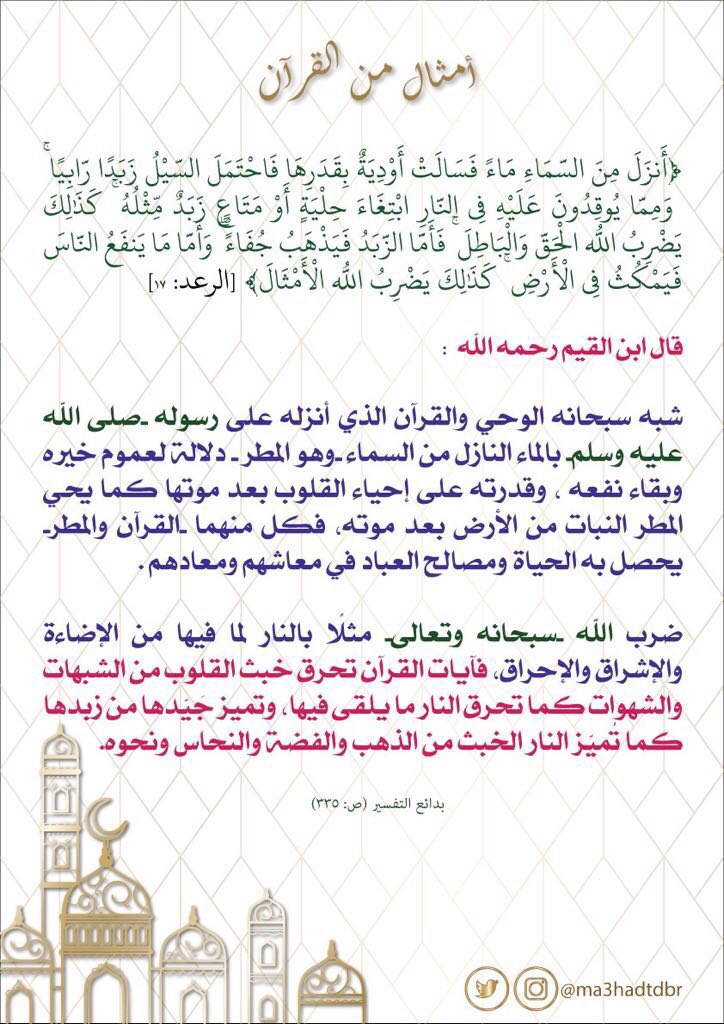 أمثال من القرآن
﴿أَنزَلَ مِنَ السَّمَاءِ مَاءً فَسَالَتْ أَوْدِيَةٌ بِقَدَرِهَا فَاحْتَمَلَ السَّيْلُ زَبَدًا رَّابِيًا ۚ
وَمِمَّا يُوقِدُونَ عَلَيْهِ فِي النَّارِ ابْتِغَاءَ حِلْيَةٍ أَوْ مَتَاعٍ زَبَدٌ مِّثْلُهُ ۚ كَذَٰلِكَ
يَضْرِبُ اللَّهُ الْحَقَّ وَالْبَاطِلَ ۚ فَأَمَّا الزَّبَدُ فَيَذْهَبُ جُفَاءً ۖ وَأَمَّا مَا يَنفَعُ النَّاسَ
فَيَمْكُثُ فِي الْأَرْضِ ۚ كَذَٰلِكَ يَضْرِبُ اللَّهُ الْأَمْثَالَ﴾ [الرعد: ١٧]
قال ابن القيم رحمه الله :
شبه سبحانه الوحي والقرآن الذي أنزله على رسوله ـصلى الله
عليه وسلمـ بالماء النازل من السماء ـوهو المطرـ دلالة لعموم خيره
وبقاء نفعه ، وقدرته على إحياء القلوب بعد موتها كما يحي
المطر النبات من الأرض بعد موته، فكل منهما ـالقرآن والمطرـ
يحصل به الحياة ومصالح العباد في معاشهم ومعادهم.
ضرب الله ـسبحانه وتعالىـ مثلًا بالنار لما فيها من الإضاءة
والإشراق والإحراق، فآيات القرآن تحرق خبث القلوب من الشبهات
والشهوات كما تحرق النار ما يلقى فيها، وتميز جَيّدها من زبدها
كما تُميّز النار الخبث من الذهب والفضة والنحاس ونحوه.
بدائع التفسير (ص: ٣٣٥)
@ma3hadtdbr